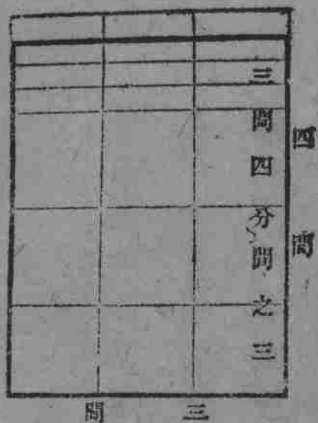 四間
三間四分間之三
三間